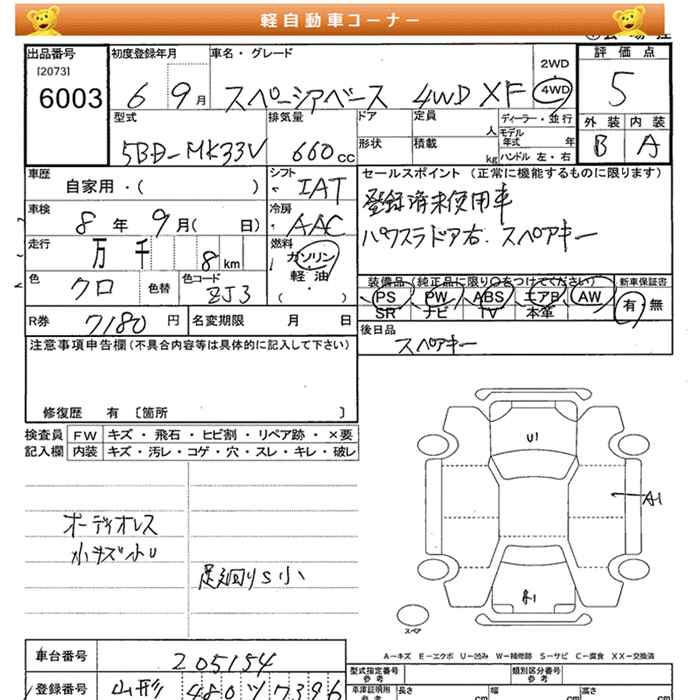 軽自動車コーナー
出品番号
[2073]
6003
初度登録年月
6 9月
車名・グレード
スペーシアベース 4WD XF
2WD
4WD
評価点
5
外装 内装
B A
型式
5BD-MK33V
排気量
660cc
ドア
形状
定員
人
積載
kg
ディーラー・並行
モデル年式 年
ハンドル 左・右
車歴
自家用・( )
シフト
IAT
セールスポイント (正常に機能するものに限ります)
登録済未使用車
パワスラドア右. スペアキー
車検
8年 9月( 日)
冷房
AAC
走行
万 千 8km
燃料
ガソリン
軽油
( ・ )
色
クロ
色替
色コード
ZJ3
装備品(純正品に限り○をつけてください)
PS PW ABS エアB AW
SR ナビ TV 本革
新車保証書
有 無
R券
7180円
名変期限 月 日
後日品
スペアキー
注意事項申告欄(不具合内容等は具体的に記入して下さい)
修復歴 有 〔箇所 〕
検査員記入欄
FW キズ・飛石・ヒビ割・リペア跡・×要
内装 キズ・汚レ・コゲ・穴・スレ・キレ・破レ
オーディオレス
小キズ小U
足回りS小
U1
A1
A1
スペア
A-キズ E-エクボ U-凹み W-補修跡 S-サビ C-腐食 XX-交換済
車台番号
205154
登録番号
山形 480 ツ 7396
型式指定番号
参考
類別区分番号
参考
車庫証明用
参考
長さ cm
幅 cm
高さ cm